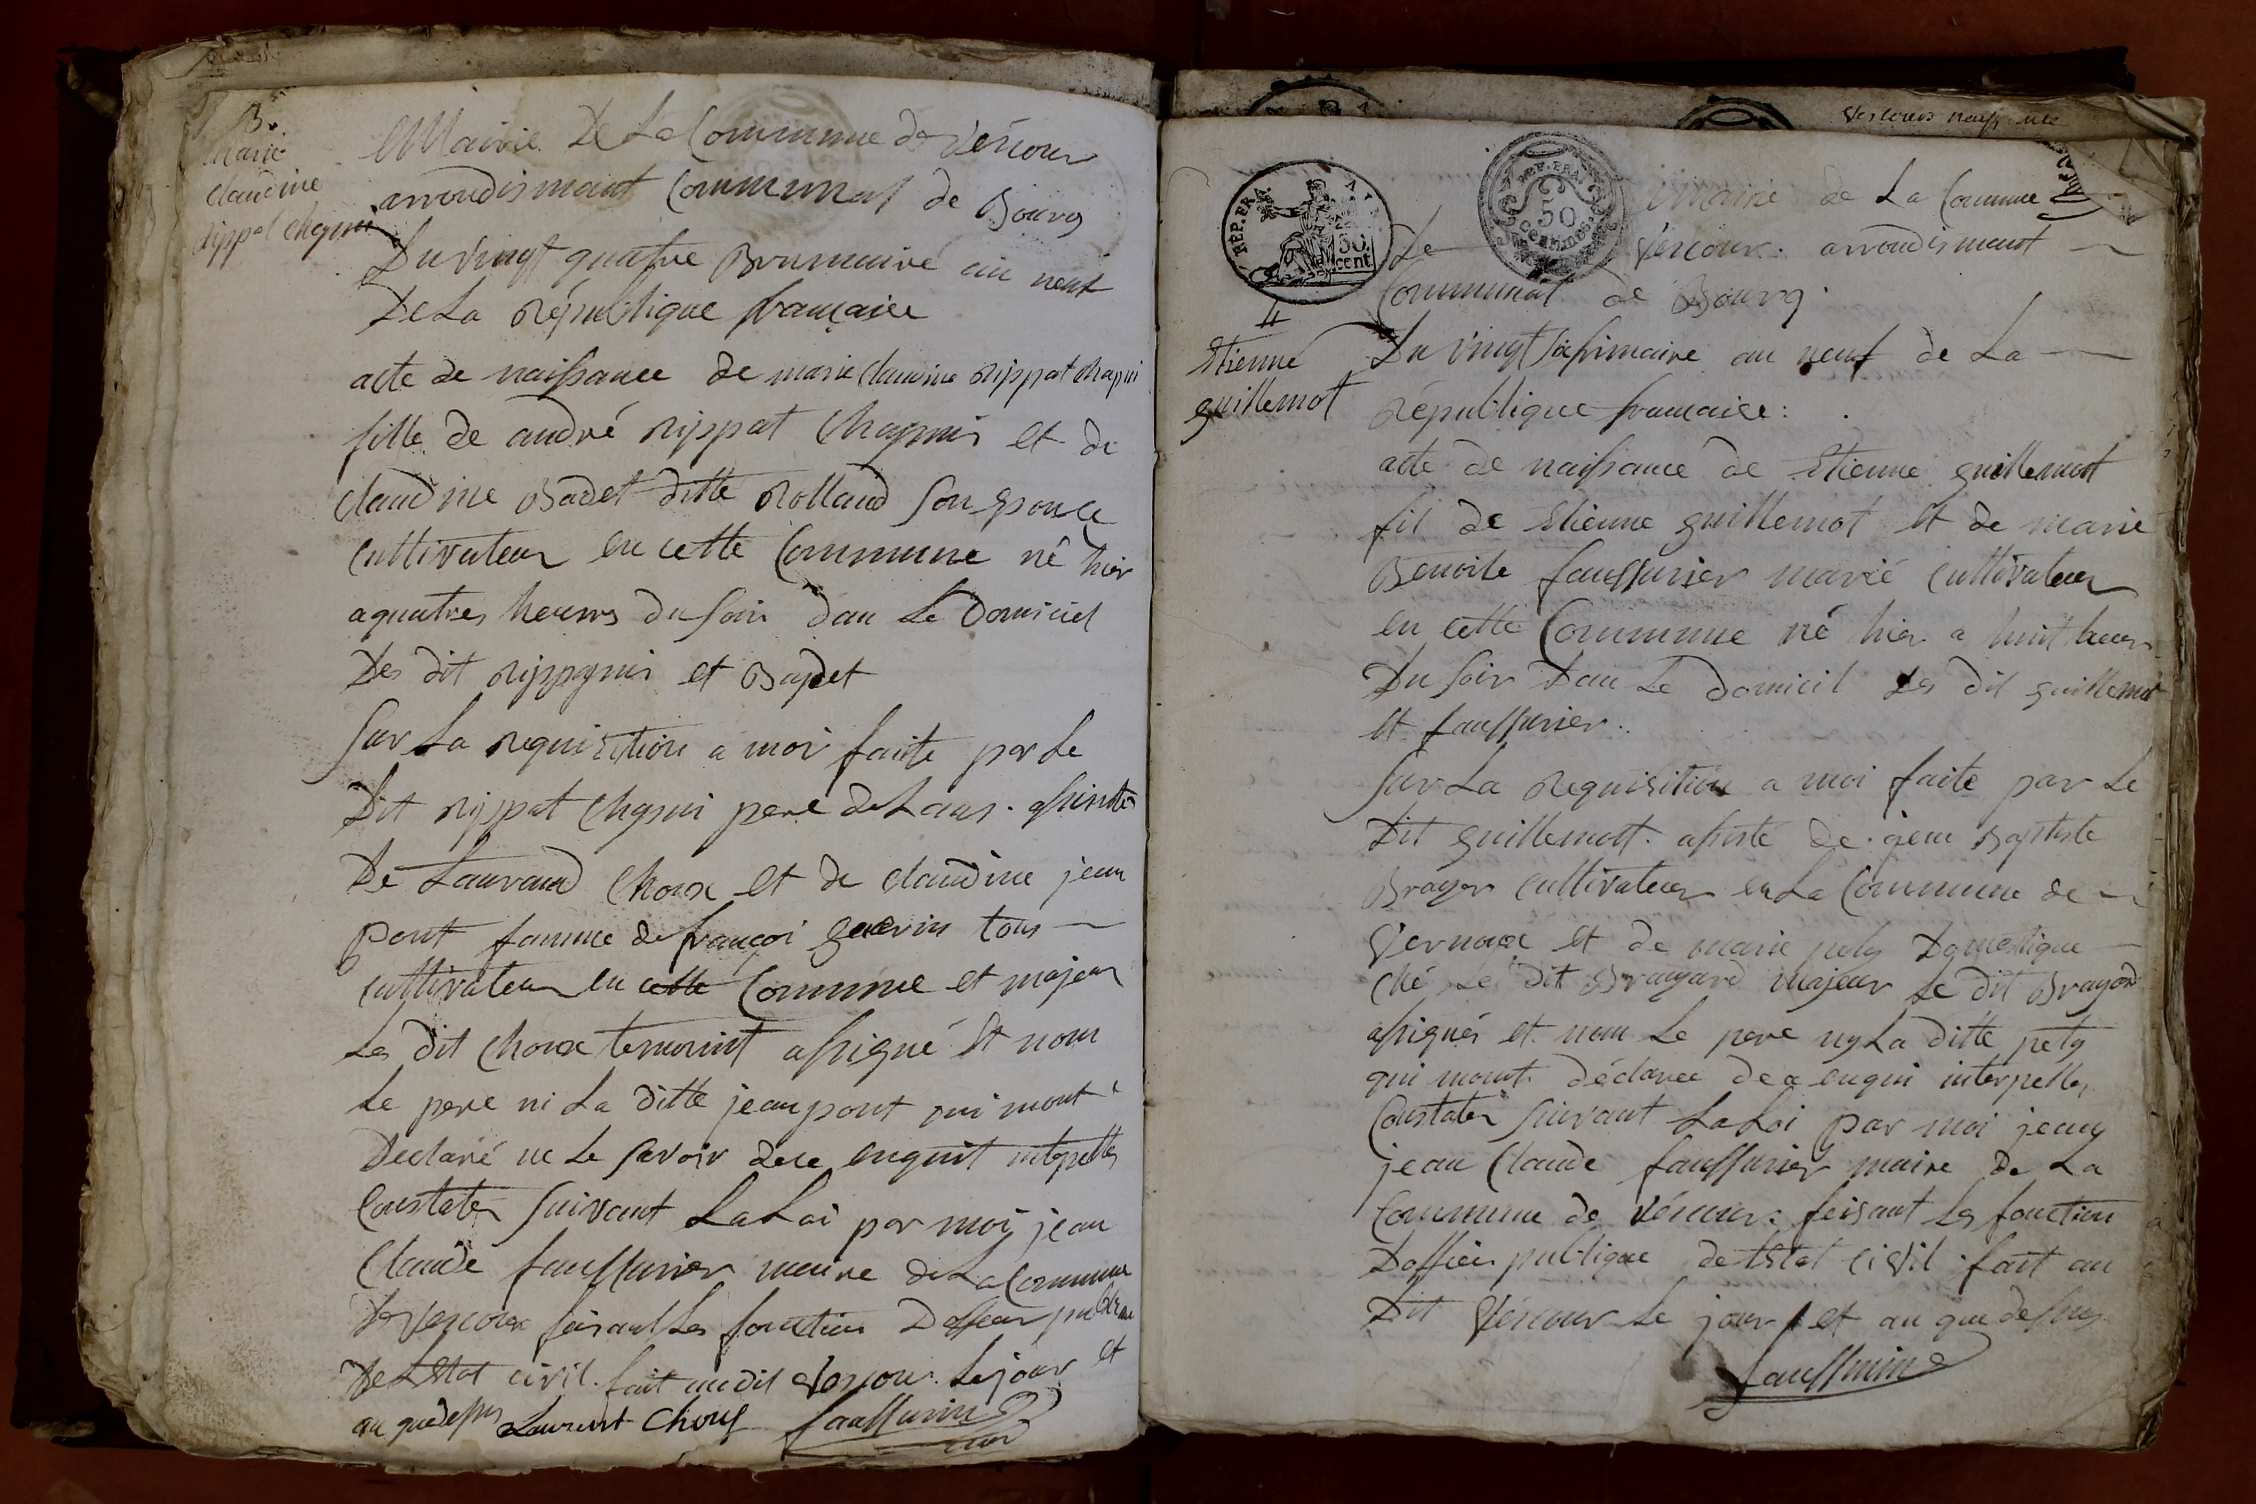 13
Marie
claudine
rippat chapui
Mairie De La Commune de Vescour
arrondismant Communal de Bourg
Du vingt quatre Brumaire an neuf
De La République française
acte de naissance de marie claudine rippat chapui
fille de andré rippat Chapuis et de
claudine Badet ditte Rolland son epouse
cultivateur en cette Commune né hier
a quatres heures du soir dan Le Domiciel
Des dit et Badet
Sur La requisition a moi faite par Le
Dit rippat Chapui pere de
De Laurand Choux et de claudine jean
pont famme de françoi guerin tous
cultivateur en cette Commune et majeur
Les dit Choux temoint assigné et nom
Le pere ni La ditte jeanpont qui mont
Declaré ne Le savoir dece enquit
Constater suivant La Loi par moi jean
Claude fauffurier maire de La Commune
De Vescour faisant Les fonction
De Letat civil. fait audit Vescour Le jour et
an que dessus Laurent Chouf fauffurier
Vescours naiss
RÉP. FRA.
50
cent
REP. FRA.
50
centimes
Mairie de La Commune
de Vescour arrondismant
Communal de Bourg.
Etienne
guillemot
Du vingt frimaire an neuf de La
République française:
acte de naissance de Etienne guillemot
fil de Etienne guillemot et de marie
Benoite fauffurier marié cultivateur
en cette Commune né hier a huit heur
Du soir Dan Le Domicil Des dit guillemot
et fauffurier.
Sur La Requisition a moi faite par Le
Dit guillemot. assisté de jean Baptiste
Brayer cultivateur en La Commune de
Vernoux et de marie
ché Le dit majeur Le dit
assignés et nom Le pere ny La ditte
qui mont déclaree
Constater suivant La Loi par moi jean
jean Claude fauffurier maire De La
Commune de Vescour: feisant Les fonction
publique de Letat civil. fait au
Dit Vescour Le jour et an que dessus
fauffurier